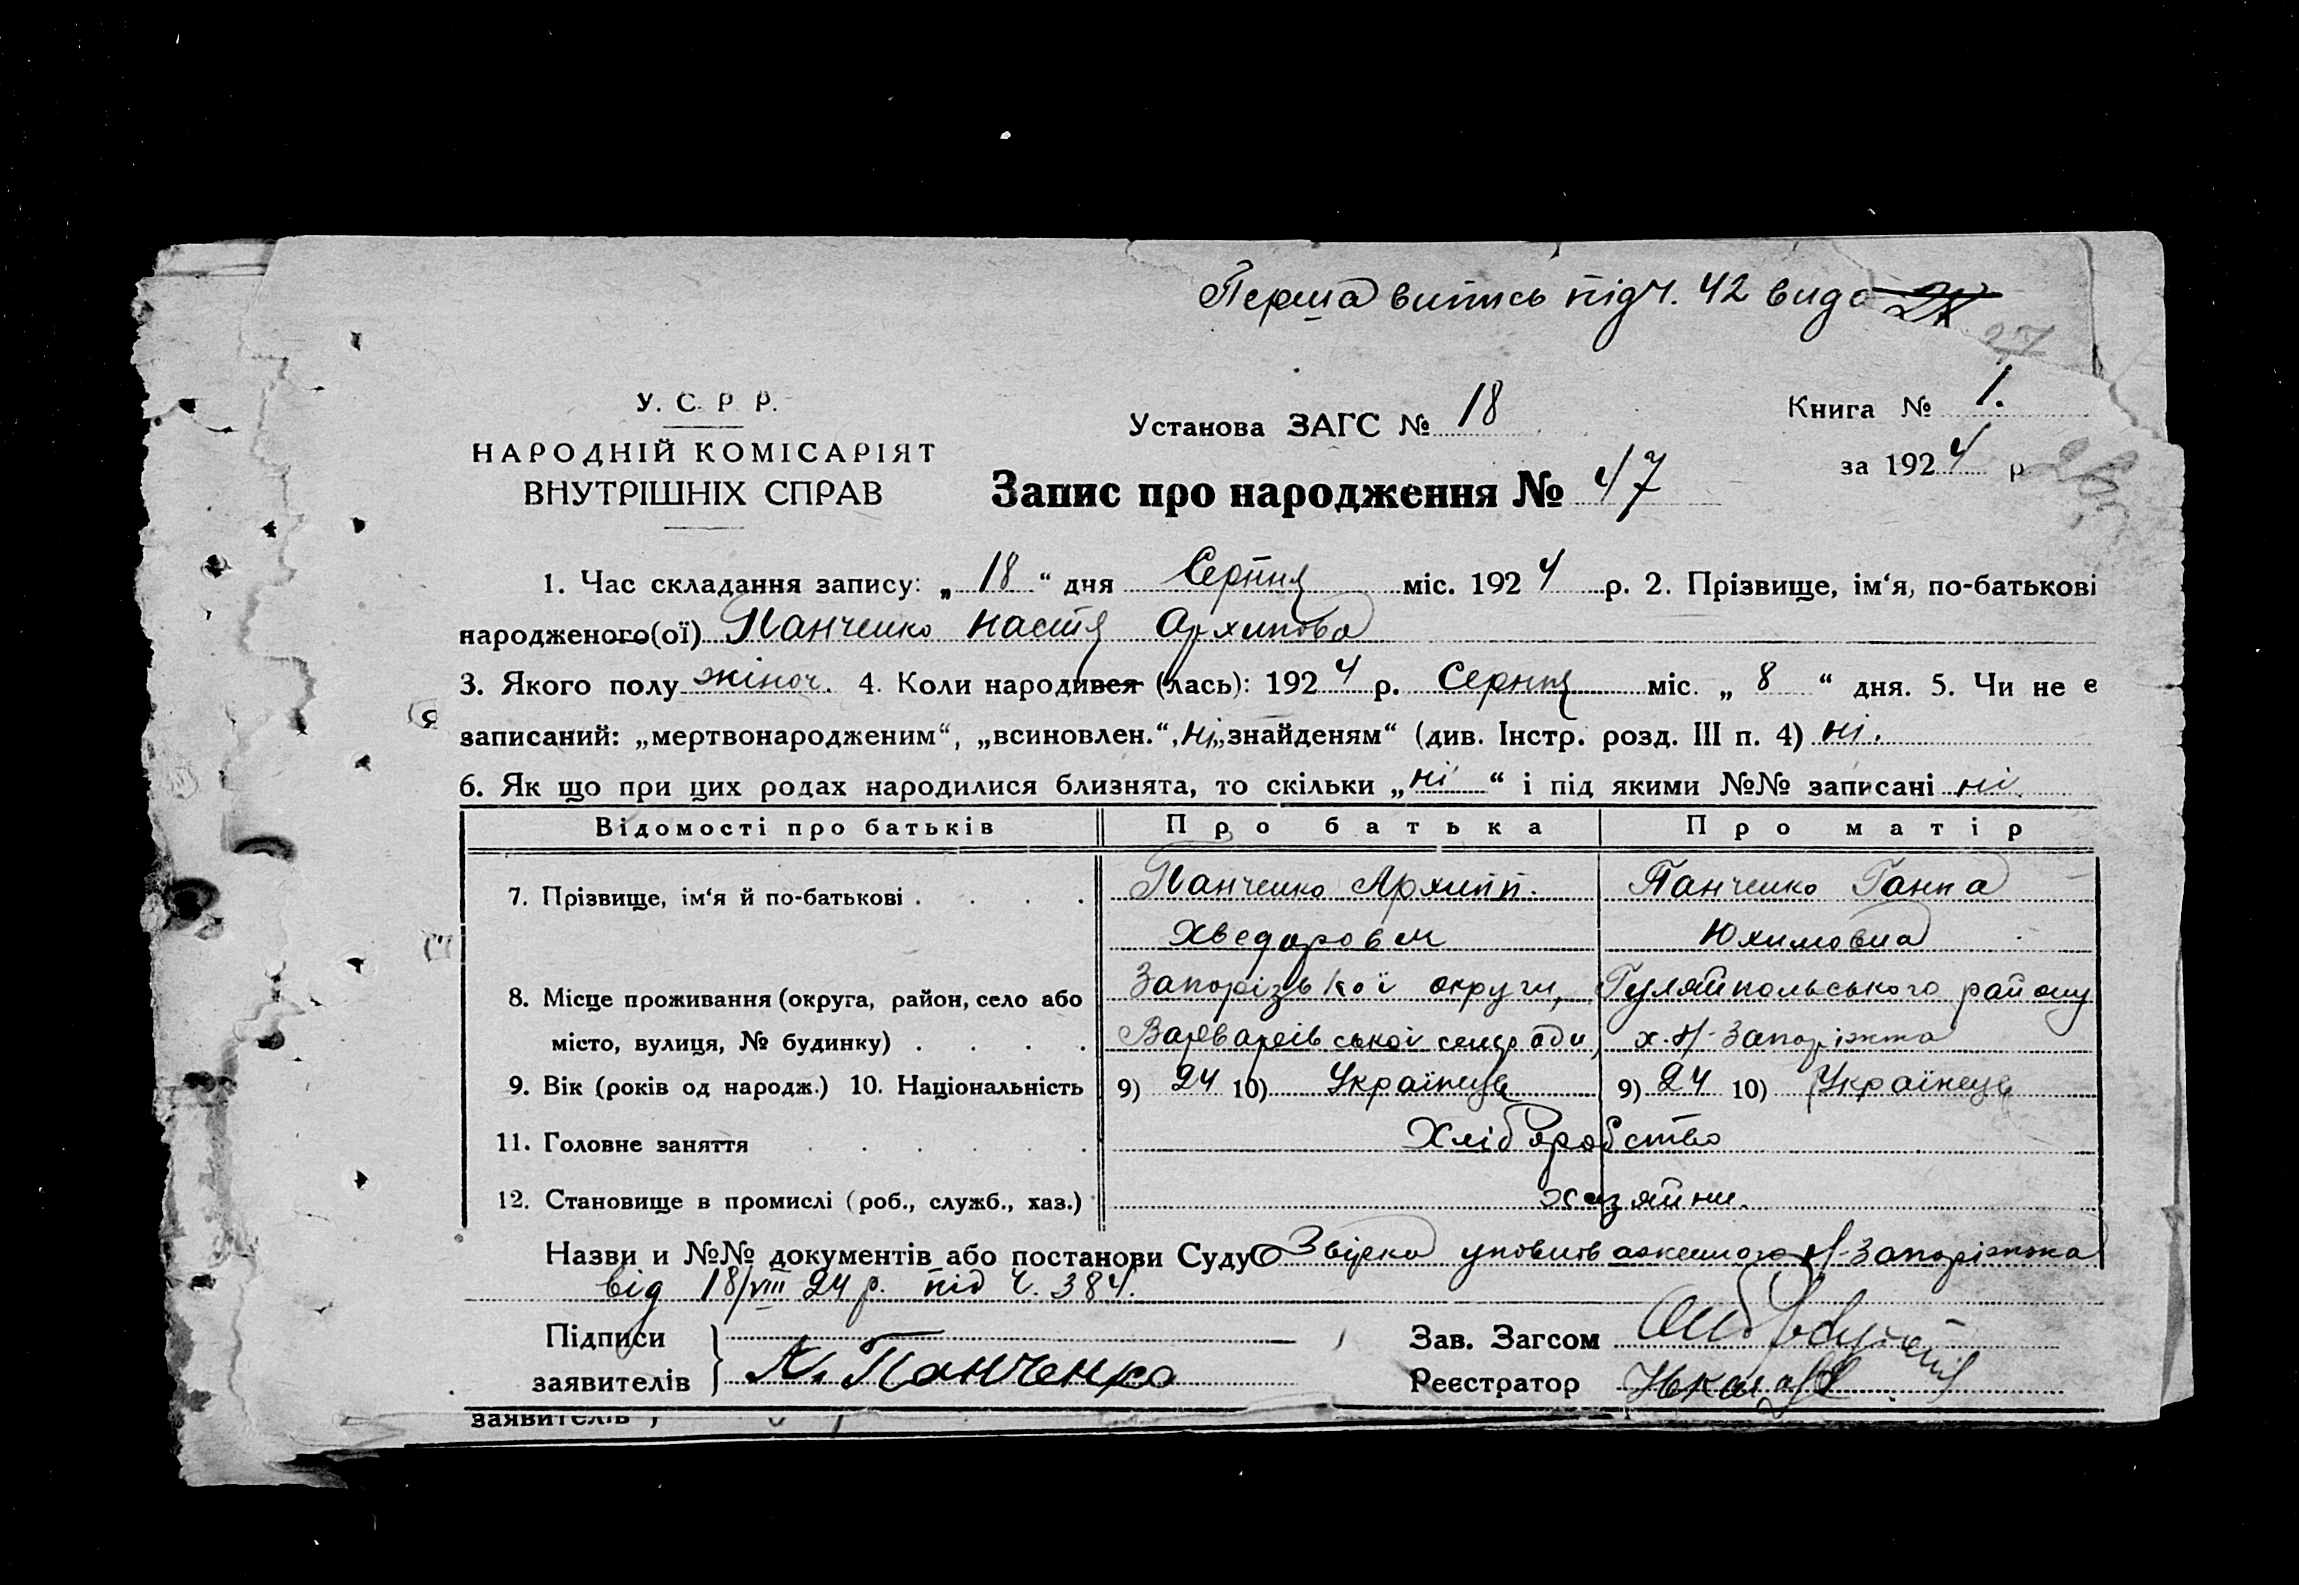 Перша випись під ч. 42 вида
27
У. С. Р. Р.
НАРОДНІЙ КОМІСАРІЯТ
ВНУТРІШНІХ СПРАВ
Установа ЗАГС № 18
Книга № 1.
за 1924 р
Запис про народження № 47
1. Час складання запису: „ 18 “ дня Серпня міс. 1924 р. 2. Прізвище, ім‘я, по-батькові
народженого(ої) Панченко Настя Архипова
3. Якого полу жіноч. 4. Коли народився (лась): 1924 р. Серпня міс. „ 8 “ дня. 5. Чи не є
записаний: „мертвонародженим“, „всиновлен.“, ні „знайденям“ (див. Інстр. розд. III п. 4) ні.
6. Як що при цих родах народилися близнята, то скільки „ ні “ і під якими №№ записані ні.
Відомості про батьків Про батька Про матір
7. Прізвище, ім‘я й по-батькові . . . . Панченко Архипп. Панченко Ганна
Хведоров Юхимовна
8. Місце проживання (округа, район, село або Запорізької округи, Гуляйпольського району
місто, вулиця, № будинку) . . . . Варварівської сельради, х. Н-Запоріжжа
9. Вік (років од народж.) 10. Національність 9) 24 10) Українець 9) 24 10) Українець
11. Головне заняття . . . . . . Хлібаробство
12. Становище в промислі (роб., служб., хаз.) хазяйни.
Назви и №№ документів або постанови Суду Н-Запоріжжа
від 18/VIII 24 р. під ч. 384.
Підписи
заявителів А. Панченко
Зав. Загсом
Реєстратор
заявителів